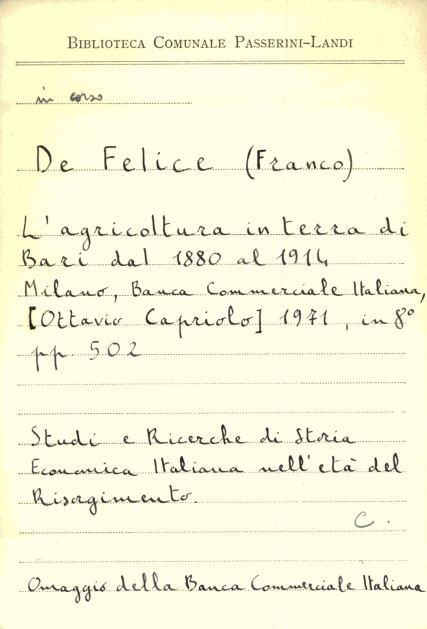 BIBLIOTECA COMUNALE PASSERINI-LANDI
in corso
De Felice (Franco)
L'agricoltura in terra di
Bari dal 1880 al 1914
Milano, Banca Commerciale Italiana,
[Ottavio Capriolo] 1971, in 8°
pp 502
Studi e Ricerche di Storia
Economica Italiana nell'età del
Risorgimento.
C.
Omaggio della Banca Commerciale Italiana